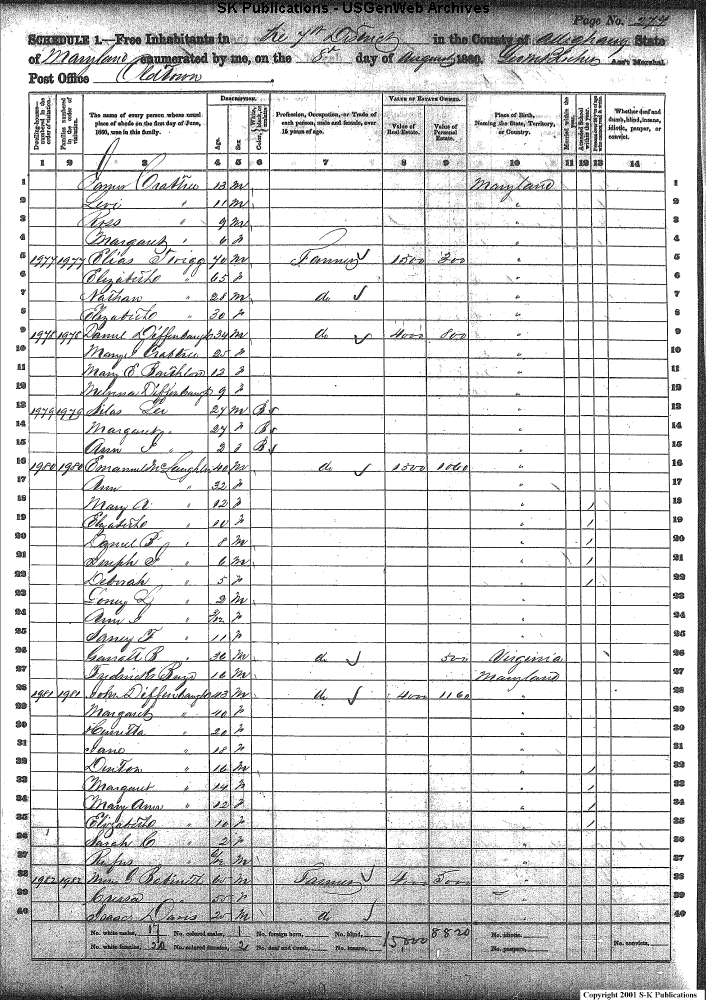 SK Publications - USGenWeb Archives
Page No. 274
SCHEDULE 1.—Free Inhabitants in the 7th District in the County of Allegany State
of Maryland enumerated by me, on the 8th day of August 1860. Ass't Marshal.
Post Office Oldtown
Dwelling-houses—numbered in the order of visitation.
Families numbered in the order of visitation.
The name of every person whose usual place of abode on the first day of June, 1860, was in this family.
DESCRIPTION.
Age.
Sex.
Color, White, black, or mulatto.
Profession, Occupation, or Trade of each person, male and female, over 15 years of age.
VALUE OF ESTATE OWNED.
Value of Real Estate.
Value of Personal Estate.
Place of Birth, Naming the State, Territory, or Country.
Married within the year.
Attended School within the year.
Whether deaf and dumb, blind, insane, idiotic, pauper, or convict.
1 2 3 4 5 6 7 8 9 10 11 12 13 14
1 James Crabtree 13 M Maryland 1
2 Levi " 11 M " 2
3 Ross " 9 M " 3
4 Margaret " 6 F " 4
5 1977 1977 Elias Twigg 70 M Farmer 1500 300 " 5
6 Elizabeth " 65 F " 6
7 Nathan " 28 M do " 7
8 Elizabeth " 30 F " 8
9 1978 1978 Daniel Diffenbaugh 34 M do 4000 800 " 9
10 Mary J Crabtree 25 F " 10
11 Mary E 12 F " 11
12 Melvina Diffenbaugh 9 F " 12
13 1979 1979 Silas Lee 27 M B " 13
14 Margaret " 27 F B " 14
15 Ann " 2 F B " 15
16 1980 1980 Emanuel McLaughlin 40 M do 1500 1060 " 16
17 Ann " 32 F " 17
18 Mary A " 12 F " / 18
19 Elizabeth " 10 F " / 19
20 Daniel B " 8 M " / 20
21 Joseph " 6 M " / 21
22 Deborah " 5 F " / 22
23 " 2 M " 23
24 Ann " F " 24
25 Nancy F " 11 F " 25
26 Garratt B " 36 M do 500 Virginia 26
27 Fredrick 16 M Maryland 27
28 1981 1981 John Diffenbaugh 43 M do 4000 1160 " 28
29 Margaret " 40 F " 29
30 Henrietta " 20 F " 30
31 Jane " 18 F " 31
32 Denton " 16 M " / 32
33 Margaret " 14 F " / 33
34 Mary Ann " 12 F " / 34
35 Elizabeth " 10 F " / 35
36 Sarah C " 2 F " 36
37 Rufus " M " 37
38 1982 1982 Robinett 65 M Farmer " 38
39 " 55 F " 39
40 Isaac Davis 25 M do " 40
No. white males, 17 No. colored males, 1 No. foreign born, No. blind, 15,000 8820 No. idiotic,
No. white females, 20 No. colored females, 2 No. deaf and dumb, No. insane, No. paupers, No. convicts,
Copyright 2001 S-K Publications